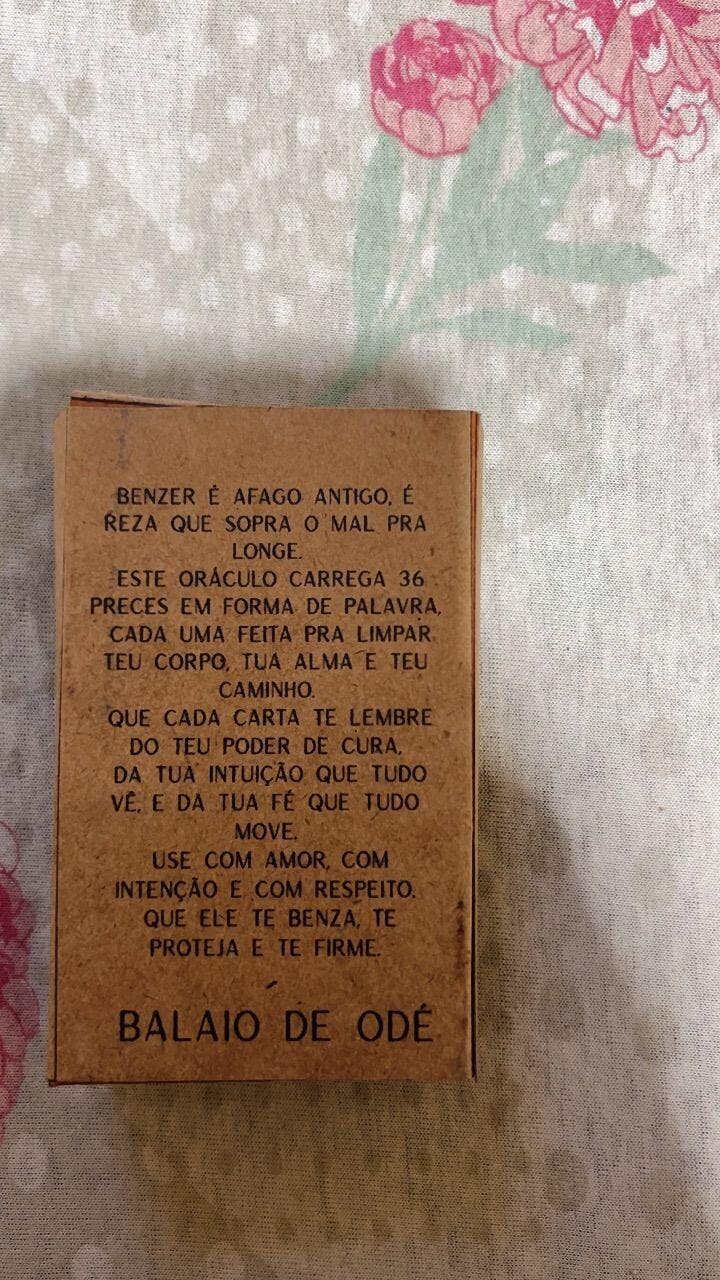 BENZER É AFAGO ANTIGO, É
REZA QUE SOPRA O MAL PRA
LONGE.
ESTE ORÁCULO CARREGA 36
PRECES EM FORMA DE PALAVRA,
CADA UMA FEITA PRA LIMPAR
TEU CORPO, TUA ALMA E TEU
CAMINHO.
QUE CADA CARTA TE LEMBRE
DO TEU PODER DE CURA,
DA TUA INTUIÇÃO QUE TUDO
VÊ, E DA TUA FÉ QUE TUDO
MOVE.
USE COM AMOR, COM
INTENÇÃO E COM RESPEITO.
QUE ELE TE BENZA, TE
PROTEJA E TE FIRME.
BALAIO DE ODÉ